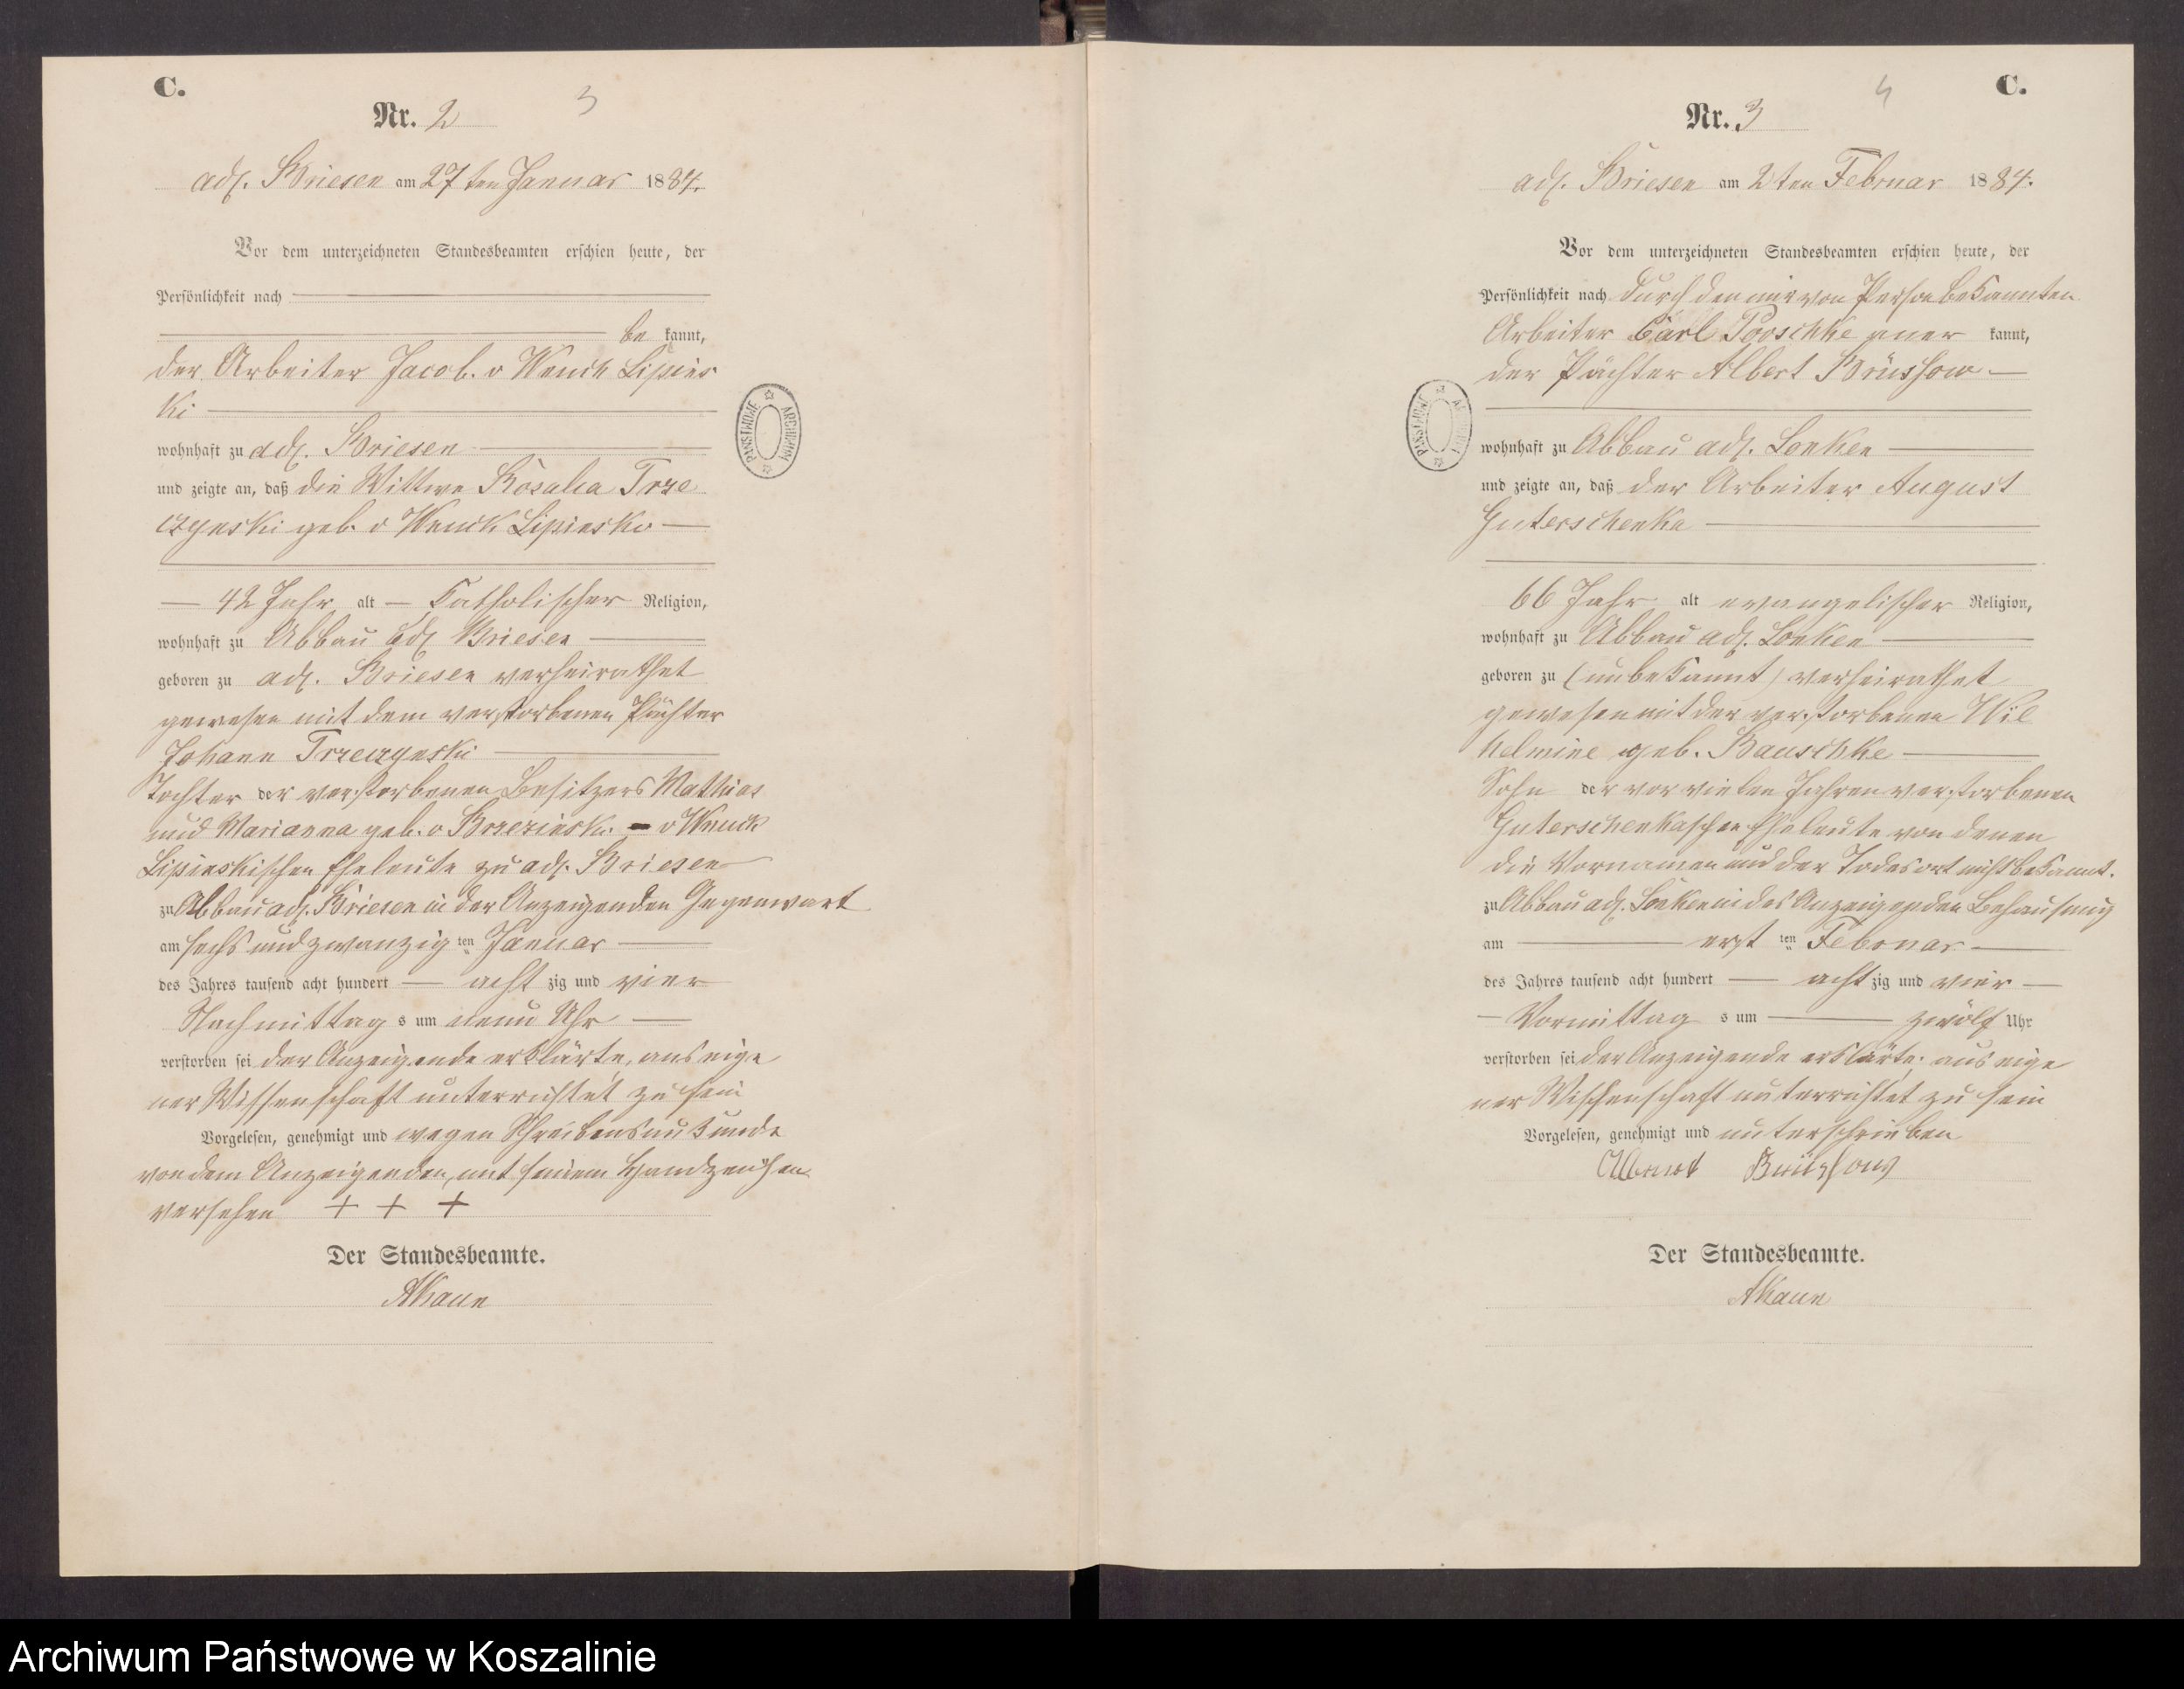 C.
Nr. 2
3
adl. Briesen am 27ten Januar 1884.
Vor dem unterzeichneten Standesbeamten erschien heute, der
Persönlichkeit nach
be kannt,
der Arbeiter Jacob v Wnuck Lipins
ki
wohnhaft zu adl. Briesen
und zeigte an, daß die Wittwe Rosalia Trze
czynski geb. v Wnuck Lipinsko
42 Jahr alt Catholischer Religion,
wohnhaft zu Abbau adl Briesen
geboren zu adl. Briesen verheirathet
gewesen mit dem verstorbenen Pächter
Johann Trzeczynski
Tochter der verstorbenen Besitzers Mathias
und Marianna geb. v Brzezinsk. v Wnuck
Lipinskischen Eheleute zu adl. Briesen
zu Abbau adl. Briesen in der Anzeigenden Gegenwart
am sechs und zwanzig ten Januar
des Jahres tausend acht hundert acht zig und vier
Nachmittag s um neun Uhr
verstorben sei der Anzeigende erklärte, aus eige
ner Wissenschaft unterrichtet zu sein
Vorgelesen, genehmigt und wegen Schreibensunkunde
von dem Anzeigenden, mit seinem Handzeichen
versehen + + +
Der Standesbeamte.
PAŃSTWOWE ARCHIWUM
C.
Nr. 3
4
adl. Briesen am 2ten Februar 1884.
Vor dem unterzeichneten Standesbeamten erschien heute, der
Persönlichkeit nach durch den mir von Person bekannten
Arbeiter Carl Pooschke aner kannt,
der Pächter Albert Brüssow
wohnhaft zu Abbau adl. Lonken
und zeigte an, daß der Arbeiter August
Guterschenka
66 Jahr alt evangelischer Religion,
wohnhaft zu Abbau adl. Lonken
geboren zu (unbekannt) verheirathet
gewesen mit der verstorbenen Wil
helmine geb. Bauschke
Sohn der vor vielen Jahren verstorbenen
Guterschenkaschen Eheleute von denen
die Vornamen und der Todesort nicht bekannt.
zu Abbau adl. Lonken in des Anzeigenden Behausung
am erst ten Februar
des Jahres tausend acht hundert acht zig und vier
Vormittag s um zwölf Uhr
verstorben sei der Anzeigende erklärte, aus eige
ner Wissenschaft unterrichtet zu sein
Vorgelesen, genehmigt und unterschrieben
Albert Brüssow
Der Standesbeamte.
PAŃSTWOWE
Archiwum Państwowe w Koszalinie